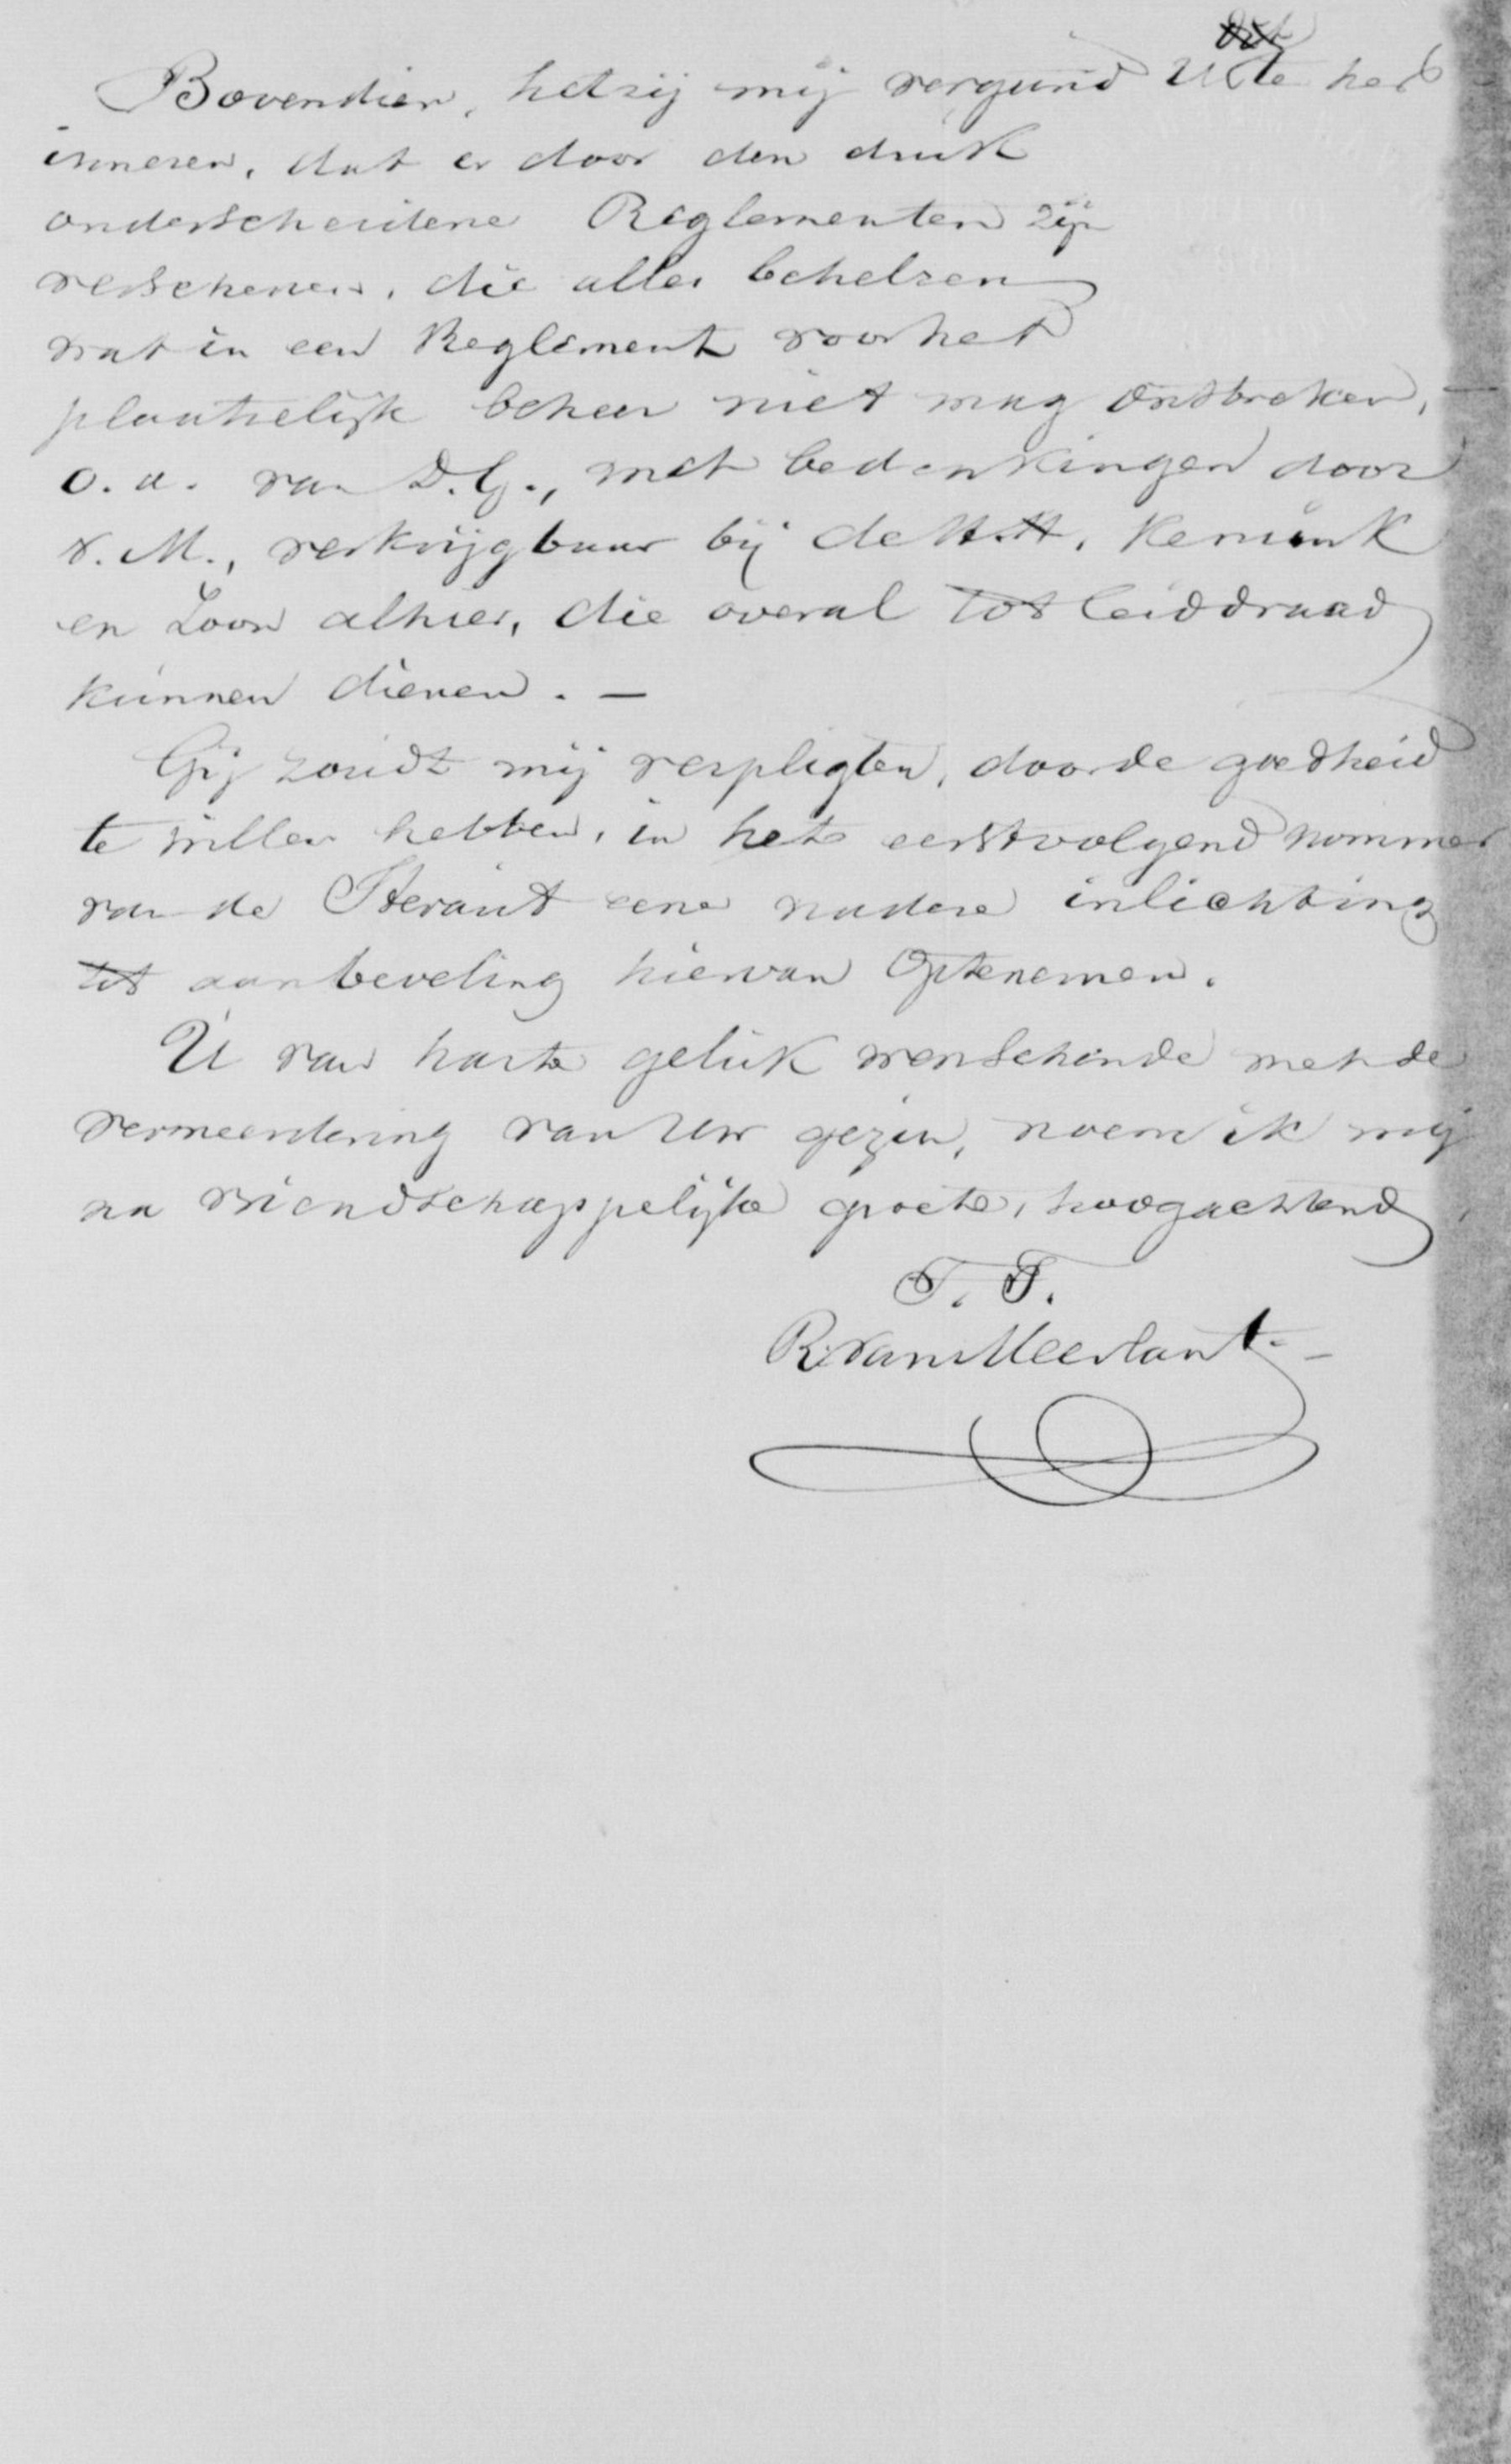 Bovendien, hetzij mij vergund U te her
inneren, dat er door den druk
onderscheidene Reglementen zijn
verschenen, die alles behelzen
wat in een Reglement voor het
plaatselijk beheer niet mag ontbreken,
o. a. van D. G., met bedenkingen door
v. M., verkrijgbaar bij de H.H. Kemink
en Zoon alhier, die overal tot leiddraad
kunnen dienen. —
Gij zoudt mij verpligten, door de goedheid
te willen hebben, in het eerstvolgend nommer
van de Heraut eene nadere inlichting
tot aanbeveling hiervan optenemen.
U van harte geluk wenschende met de
vermeerdering van Uw gezin, noem ik mij
na vriendschappelijke groete, hoogachtend,
T. T.
R. van Meerlant. -